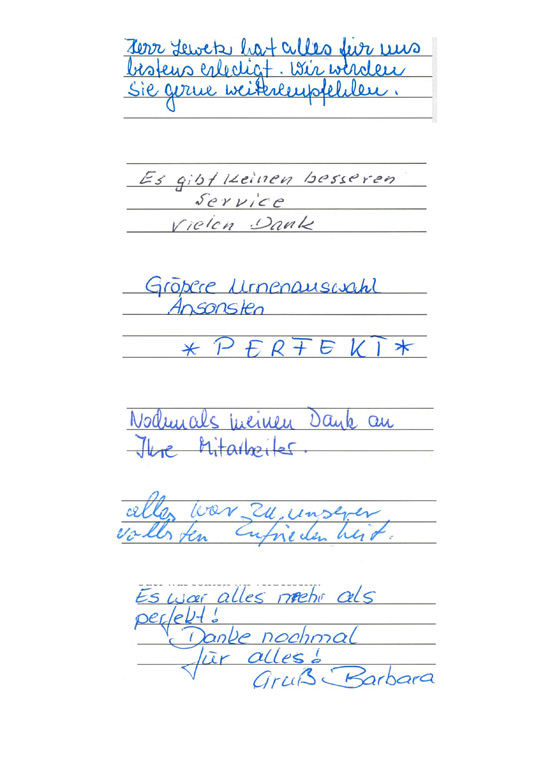 Herr Lewek hat alles für uns
bestens erledigt. Wir werden
Sie gerne weiterempfehlen.
Es gibt keinen besseren
Service
Vielen Dank
Größere Urnenauswahl
Ansonsten
* PERFEKT *
Nochmals meinen Dank an
Ihre Mitarbeiter.
alles war zu unserer
vollsten Zufriedenheit.
Es war alles mehr als
perfekt!
Danke nochmal
für alles!
Gruß Barbara